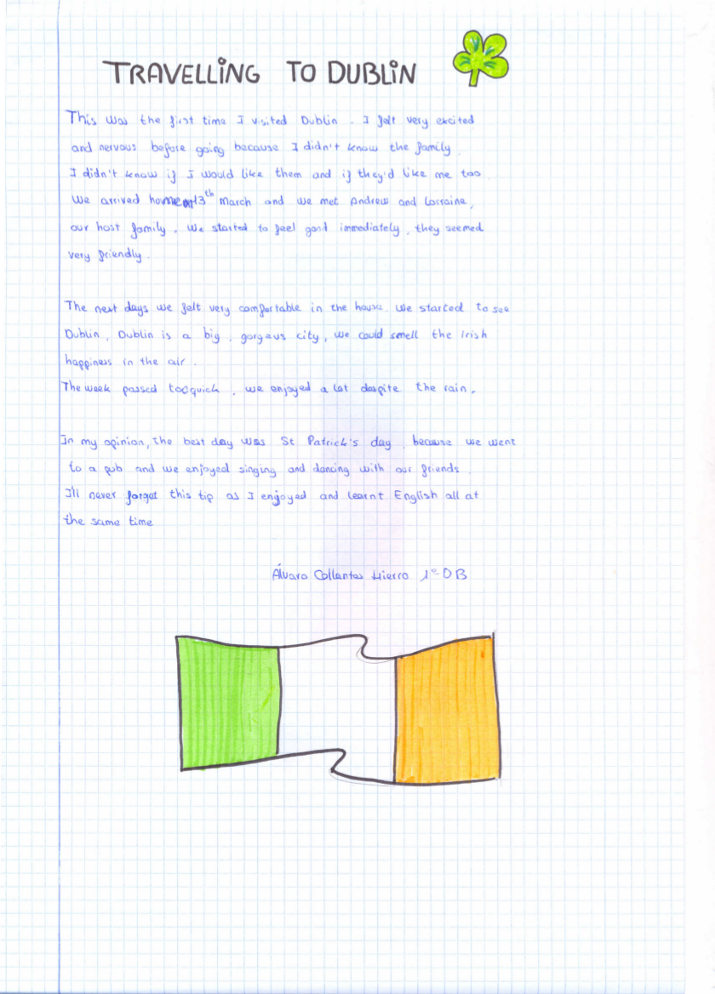 TRAVELLING TO DUBLIN
This was the first time I visited Dublin. I felt very excited
and nervous before going because I didn't know the family.
I didn't know if I would like them and if they'd like me too.
We arrived home 13th March and we met Andrew and Lorraine,
our host family. We started to feel good immediately, they seemed
very friendly.
The next days we felt very comfortable in the house. We started to see
Dublin, Dublin is a big, gorgeus city, we could smell the irish
happiness in the air.
The week passed too quick, we enjoyed a lot despite the rain.
In my opinion, the best day was St Patrick's day, because we went
to a pub and we enjoyed singing and dancing with our friends.
I'll never forget this tip as I enjoyed and learnt English all at
the same time
Álvaro Collantes Hierro 1º-DB